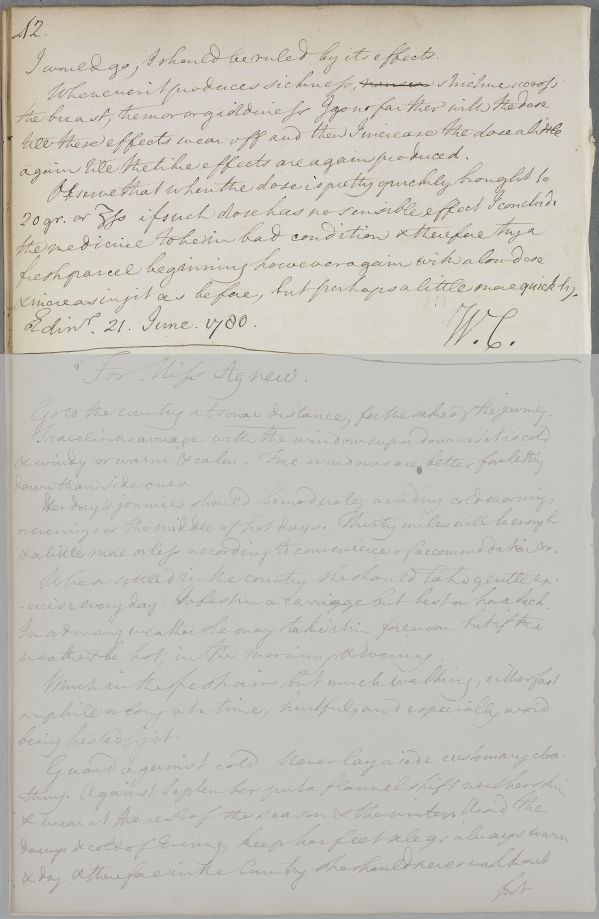 42.
I would go, I should be ruled by its effects.
Whenever it produces sickness, nausea stricture across
the breast, tremor or giddiness I go no farther with the dose
till these effects wear off and then I increase the dose a little
again till the like effects are again produced.
Observe that when the dose is pretty quickly brought to
20 gr. or ℈ſs if such dose has no sensible effect I conclude
the medicine to be in bad condition & therefore try a
fresh parcel beginning however again with a low dose
& increasing it as before, but perhaps a little more quickly.
Edinr. 21. June. 1780. W. C.
For Miss Agnew.
Go to the country at some distance; for the sake of the journey.
Travel in a carriage with the windows up or down as it is cold
& windy or warm & calm. Fore windows are better for letting
down than side ones.
Her day's journies should be moderate; avoiding cold mornings
or evenings or the middle of hot days. Thirty miles will be enough
& a little more or less according to convenience of accommodation &c.
When settled in the country she should take gentle ex-
-ercise every day. Safest in a carriage but best on horseback.
In ordinary weather she may take it in forenoon but if the
weather be hot, in the morning & evening.
Much in the fresh air but much walking, either fast
or uphill or long at a time, hurtful, and especially avoid
being heated by it.
Guard against cold. Never lay aside customary cloa-
thing. Against September put a flannel shift next her skin
& wear it the rest of the season & the winter. Avoid the
damps & cold of Evening, keep her feet & legs always warm
& dry & therefore in the Country she should never walk out
but